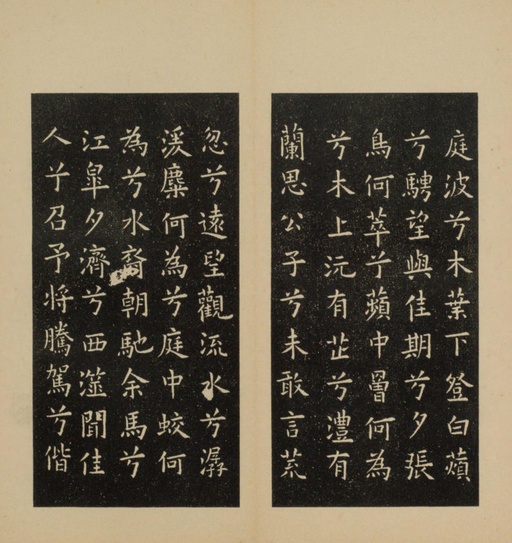 庭波兮木葉下登白薠
兮騁望與佳期兮夕張
鳥何萃兮蘋中罾何為
兮木上沅有芷兮澧有
蘭思公子兮未敢言荒
忽兮遠望觀流水兮潺
湲麋何為兮庭中蛟何
為兮水裔朝馳余馬兮
江皐夕濟兮西澨聞佳
人兮召予將騰駕兮偕